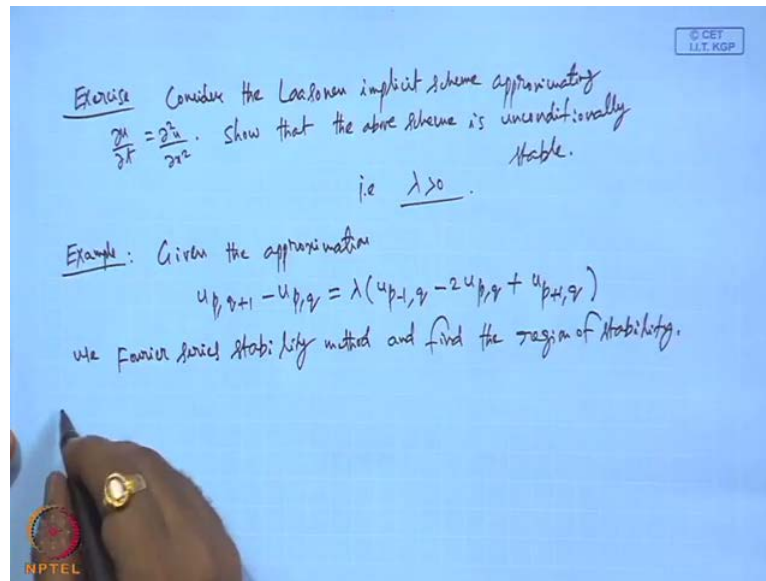 © CET
I.I.T. KGP
Exercise Consider the Laasonen implicit scheme approximating
∂u/∂t = ∂²u/∂x² . Show that the above scheme is unconditionally
stable.
i.e λ>0 .
Example : Given the approximation
u_{p,q+1} - u_{p,q} = λ(u_{p-1,q} - 2u_{p,q} + u_{p+1,q})
use Fourier series stability method and find the region of stability.
NPTEL